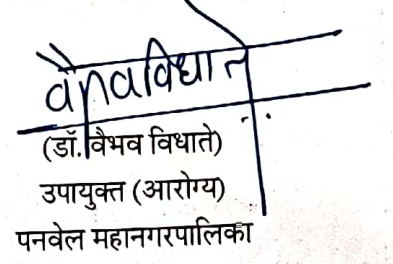 वैभवविधाते
(डॉ.वैभव विधाते)
उपायुक्त (आरोग्य)
पनवेल महानगरपालिका